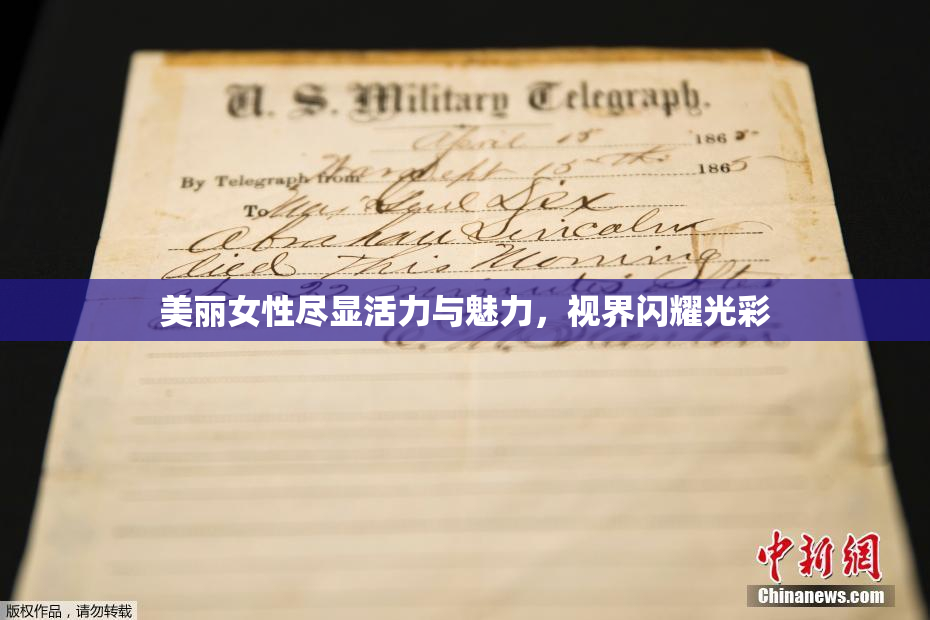 U. S. Military Telegraph.
April 15 1865
By Telegraph from War Dept 15th 1865
To Maj Genl Dix
Abraham Lincoln
died This Morning
at 22 minutes after
美丽女性尽显活力与魅力，视界闪耀光彩
E. M. Stanton
中新网
Chinanews.com
版权作品，请勿转载